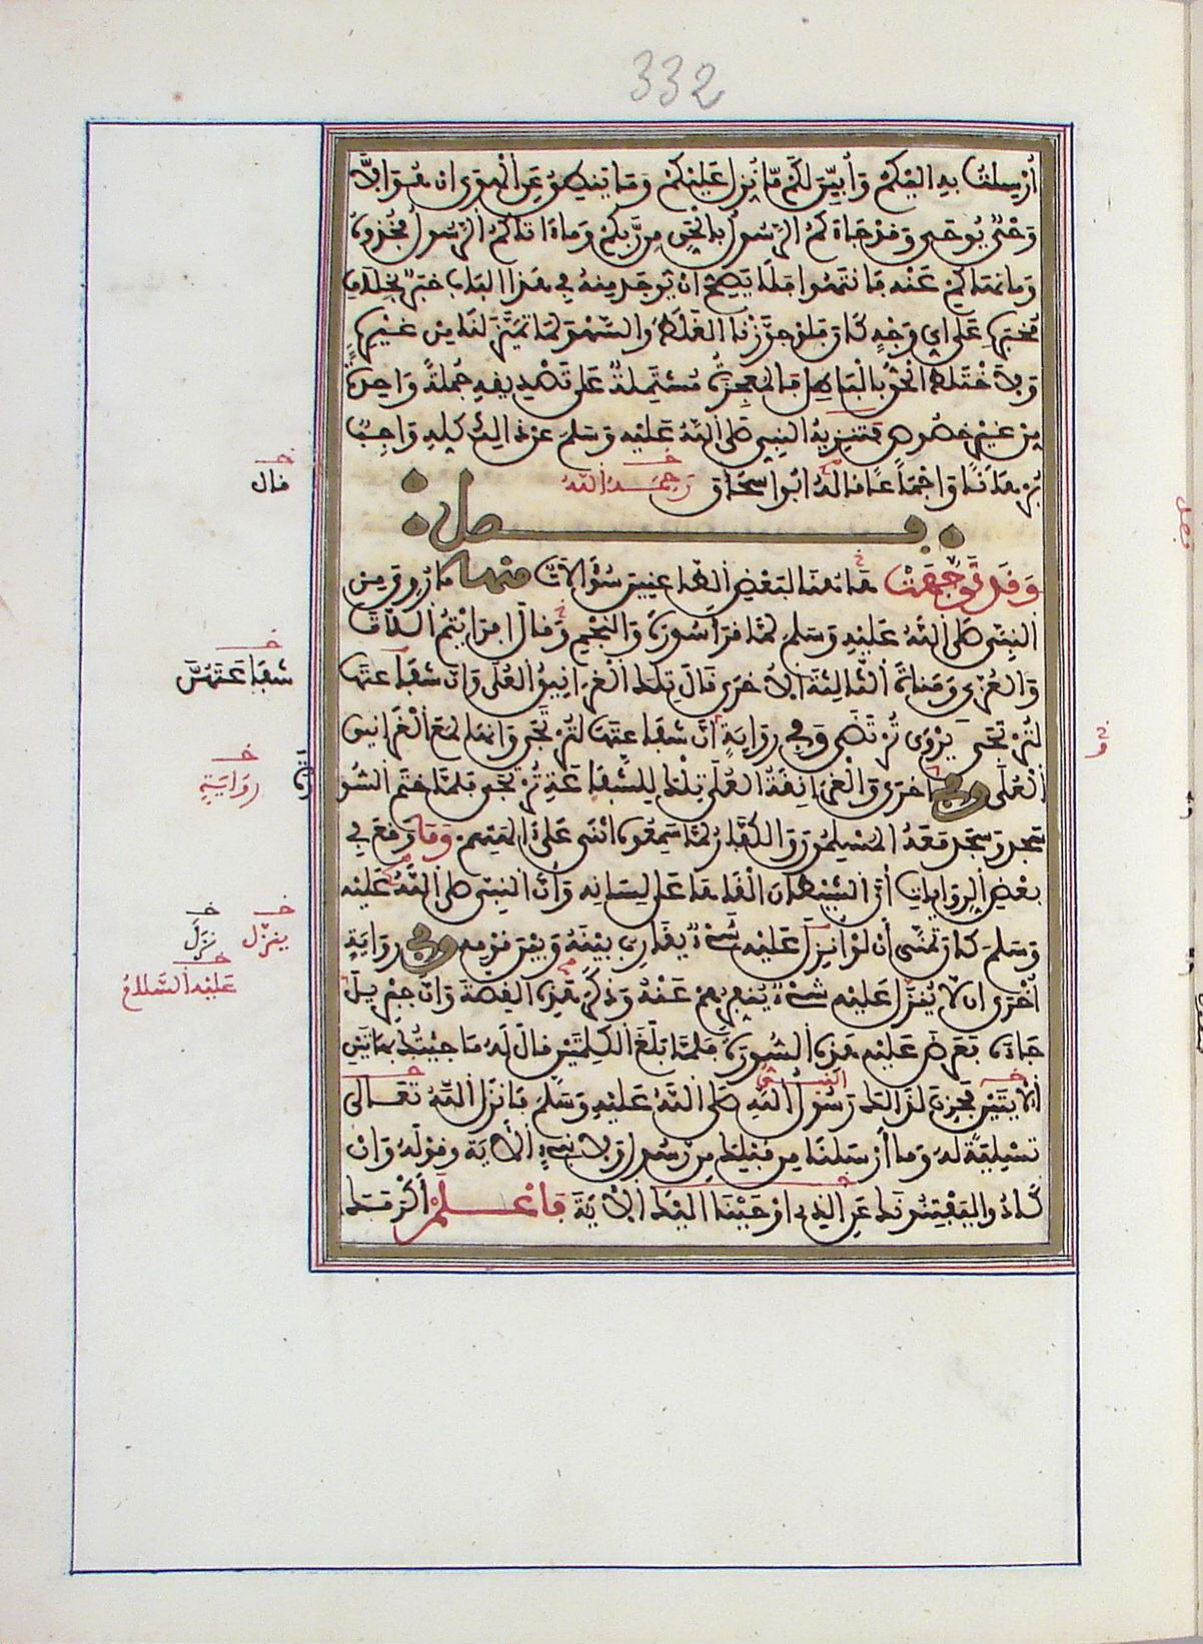 332
أُرْسِلْتُ بِهِ إِلَيْكُمْ وَأُبَيِّنَ لَكُم مَّا نُزِّلَ عَلَيْكُمْ وَمَا يَنطِقُ عَنِ الْهَوَى ان هُوَ إِلاَّ
وَحْىٌ يُوحَى وَقَدْ جَاءَكُمُ الرَّسُولُ بِالْحَقِّ مِن رَّبِّكُمْ وَمَا ءَاتَاكُمُ الرَّسُولُ فَخُذُوهُ
وَمَا نَهَاكُمْ عَنْهُ فَانْتَهُوا فَلَا يَصِحُّ انْ يُوجَدَ مِنْهُ فِي هَذَا الْبَابِ خَبَرٌ بِخِلَافِ
مُخْبَرِهِ عَلَى اي وَجْهٍ كَانَ فَلَوْ جَوَّزْنَا الْغَلَطَ وَالسَّهْوَ لَمَا تَمَيَّزَ لَنَا مِنْ غَيْرِهِ
وَلاَخْتَلَطَ الْحَقُّ بِالْبَاطِلِ فَالْمُعْجِزَةُ مُشْتَمِلَةٌ عَلَى تَصْدِيقِهِ جُمْلَةً وَاحِدَةً
مِنْ غَيْرِ خُصُوصٍ فَتَنْزِيهُ النَّبِي صَلَّى اللَّهُ عَلَيْهِ وَسَلَّمَ عَنْ ذَالِكَ كُلِّهِ وَاجِبٌ
بُرْهَانًا وَاجْمَاعًا قَالَهُ ابُوا سْحَاق رَحِمَهُ اللَّهُ
خـ قال
فصل
وَقَدْ تَوَجَّهَتْ هَاهُنَا لِبَعْضِ الطَّاعِنِينَ سُؤَالَاتٌ مِنْهَا مَا رُوِيَ مِن
النَّبِي صَلَّى اللَّهُ عَلَيْهِ وَسَلَّمَ لَمَّا قَرَأَ سُورَةَ وَالنَّجْمِ وَقَالَ افَرَايْتُمُ اللَّاتَ
وَالْعُزَّى وَمَنَاةَ الثَّالِثَةَ الأُخْرَى قَالَ تِلْكَ الْغَرَانِيقُ الْعُلَى وَانَّ شَفَاعَتَهَا
خـ شفاعتهن
لَتُرْتَجَى يُرْوَى تُرْتَضَى وَفِي رِوَايَةٍ انَّ شَفَاعَتَهَا لَتُرْتَجَى وَانَّهَا لَمَعَ الْغَرَانِيقِ
الْعُلَى وَفِي اخرى وَالْغَرَانِقَةُ الْعُلَى تِلْكَ لِلشَّفَاعَةِ تُرْتَجَى فَلَمَّا خَتَمَ السُّو
خـ رواية
سَجَدَ وَسَجَدَ مَعَهُ الْمُسْلِمُونَ وَالْكُفَّارُ لَمَّا سَمِعُوهُ اثْنَى عَلَى الهتهم وَمَا وَقَعَ فِي
بَعْضِ الرِّوَايَاتِ أَنَّ الشَّيْطَانَ الْقَاهَا عَلَى لِسَانِهِ وَأَنَّ النَّبِي صَلَّى اللَّهُ عَلَيْهِ
وَسَلَّمَ كَانَ تَمَنَّى أَنْ لَوْ انْزِلَ عَلَيْهِ شَيْءٌ يُقَارِبُ بَيْنَهُ وَبَيْنَ قَوْمِهِ وَفِي رِوَايَةٍ
خـ ينزل خـ نزل
أُخْرَى ان لَّا يُنَزَّلَ عَلَيْهِ شَيْءٌ يُنَفِّرُهُمْ عَنْهُ وَذَكَرَ هَذِهِ الْقِصَّةَ وَأَنَّ جِبْرِيلَ
خـ عليه السلام
جَاءَهُ فَعَرَضَ عَلَيْهِ هَذِهِ السُّورَةَ فَلَمَّا بَلَغَ الْكَلِمَتَيْنِ قَالَ لَهُ مَا جِئْتُكَ بِهَاتَيْنِ
الايَتَيْنِ فَحَزِنَ لِذَالِكَ رَسُولُ اللَّهِ صَلَّى اللَّهُ عَلَيْهِ وَسَلَّمَ فَانْزَلَ اللَّهُ تَعَالَى
تَسْلِيَةً لَهُ وَمَا أَرْسَلْنَا مِن قَبْلِكَ مِن رَّسُولٍ وَلَا نَبِيءٍ الْآيَةَ وَقَوْلَهُ وَان
كَادُوا لَيَفْتِنُونَكَ عَنِ الَّذِي اوْحَيْنَا الَيْكَ الْآيَةَ فَاعْلَمْ أَكْرَمَكَ